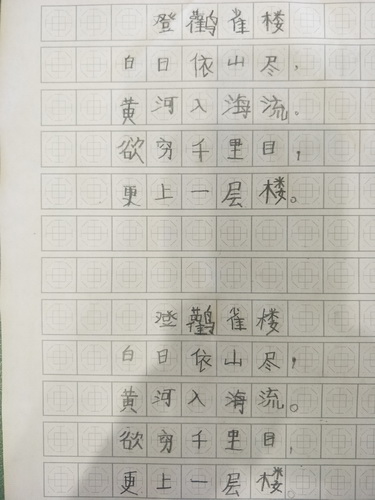 登鸛雀楼
白日依山尽，
黄河入海流。
欲穷千里目，
更上一层楼。
登鸛雀楼
白日依山尽，
黄河入海流。
欲穷千里目，
更上一层楼